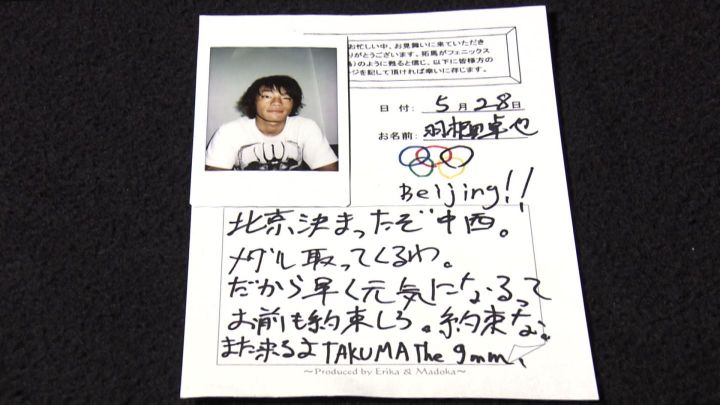 お忙しい中、お見舞いに来ていただき
りがとうございます。拓馬がフェニックス
のように甦ると信じ、以下に皆様方の
ージを記して頂ければ幸いに存じます。
日 付: 5月28日
お名前: 羽根田卓也
Beijing!!
北京決まったぞ中西。
メダル取ってくるわ。
だから早く元気になるって
お前も約束しろ。約束な。
また来るよ TAKUMA The 9mm
~Produced by Erika & Madoka~